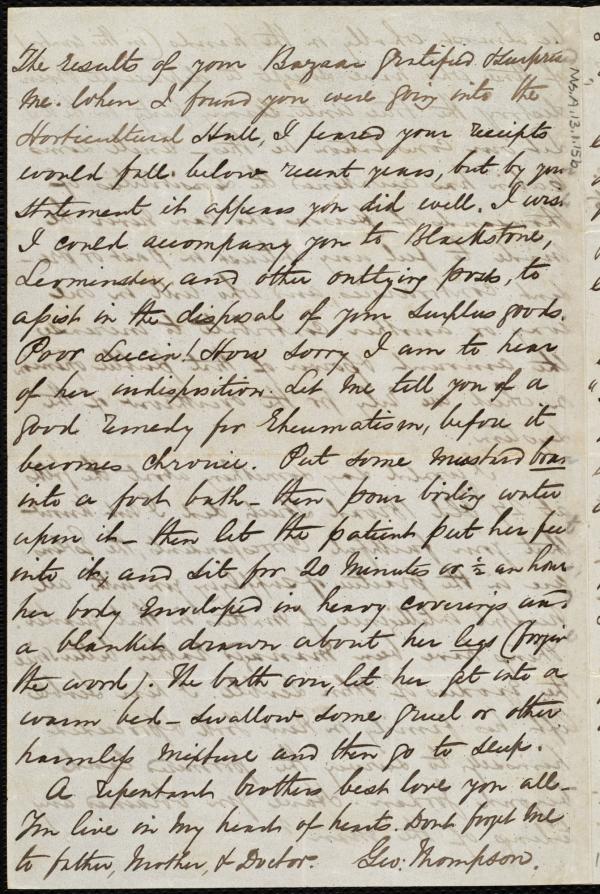 The results of your Bazaar gratified & surprised
me. When I found you were going into the
Horticultural Hall, I feared your receipts
would fall below recent years, but by your
statement it appears you did well. I wish
I could accompany you to Blackstone,
Leominster, and other outlying posts, to
assist in the disposal of your surplus goods.
Poor Lucia! How sorry I am to hear
of her indisposition. Let me tell you of a
good remedy for Rheumatism, before it
becomes chronic. Put some mustard bran
into a foot bath – then pour boiling water
upon it – then let the patient put her feet
into it, and sit for 20 minutes or ½ an hour
her body enveloped in heavy coverings and
a blanket drawn about her legs (forgive
the word). The bath over, let her get into a
warm bed – swallow some gruel or other
harmless mixture and then go to sleep.
A repentant brothers best love you all –
You live in my heart of hearts. Dont forget me
to father, Mother, & Doctor. Geo: Thompson.
Ms.A.1.3.1.56